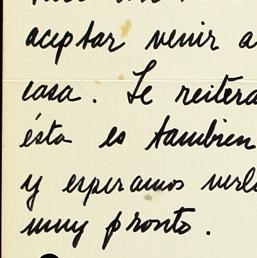 aceptar venir a
casa. Te reitera
ésta es tambien
y esperamos verl
muy pronto.